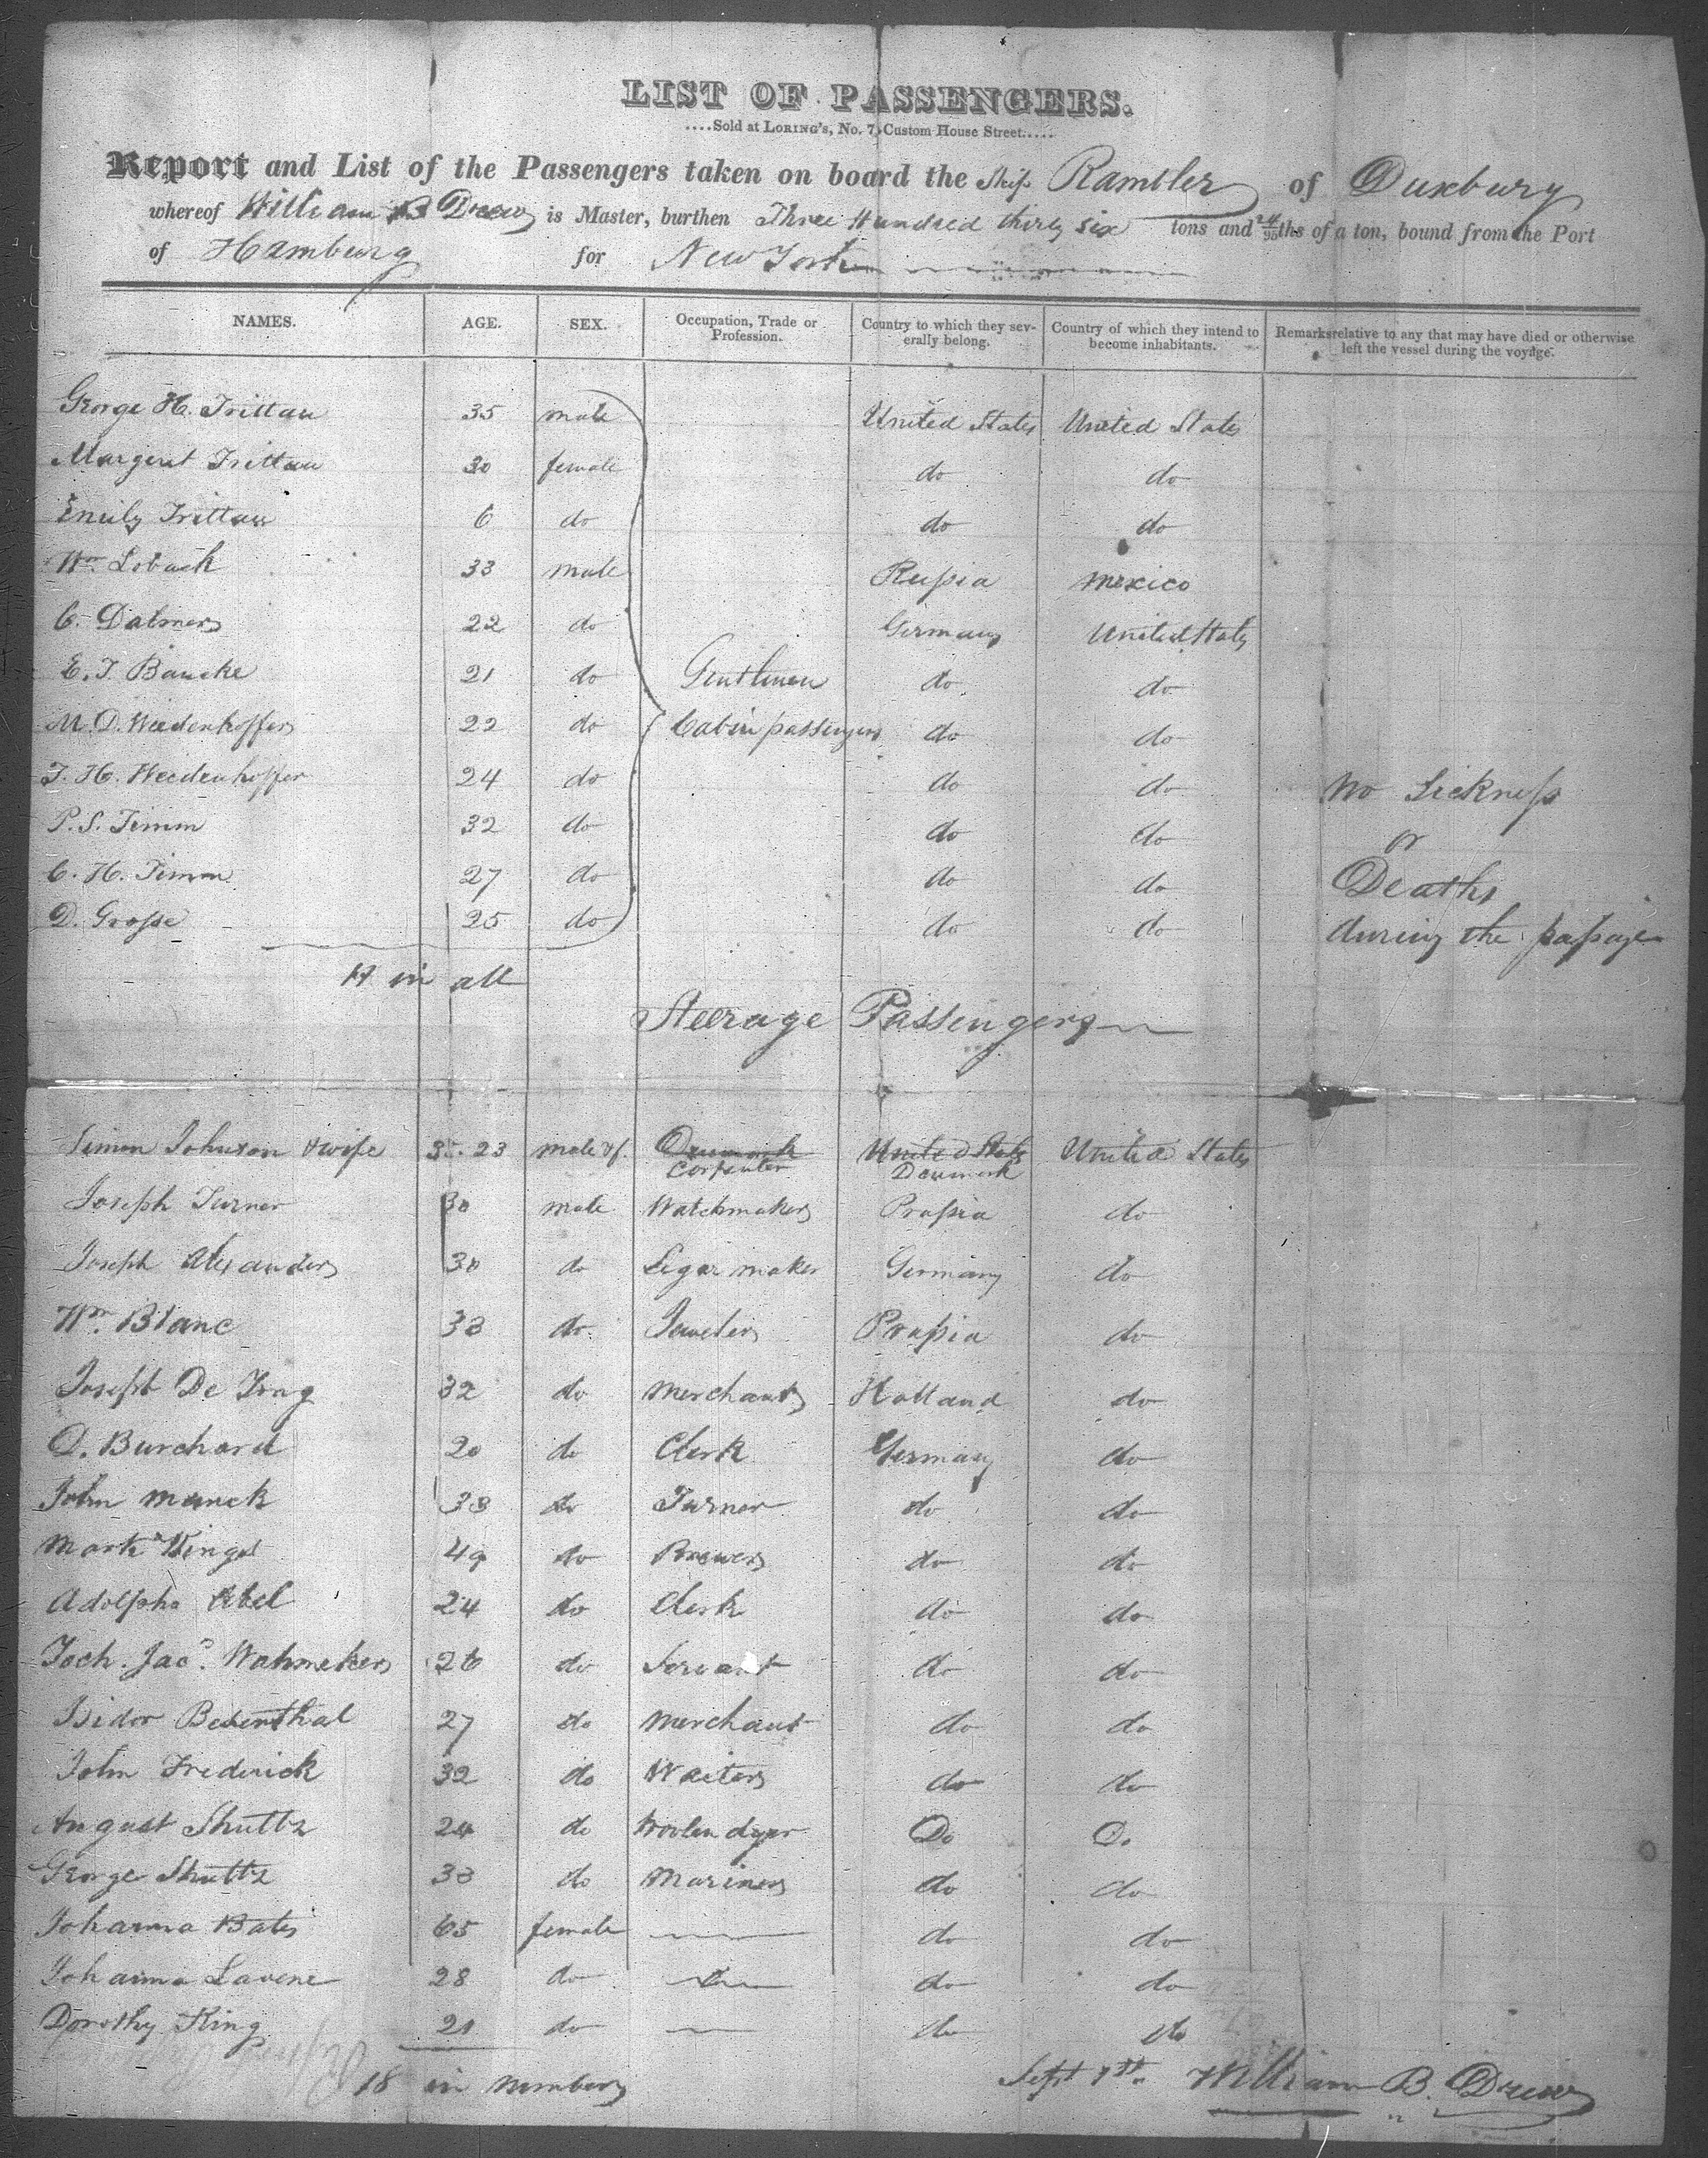 LIST OF PASSENGERS.
....Sold at LORING'S, No. 7, Custom House Street.....
Report and List of the Passengers taken on board the Ship Rambler of Duxbury
whereof William B Drew is Master, burthen Three Hundred thirty six tons and 24/95ths of a ton, bound from the Port
of Hamburg for New York
NAMES. AGE. SEX. Occupation, Trade or Profession. Country to which they severally belong. Country of which they intend to become inhabitants. Remarks relative to any that may have died or otherwise left the vessel during the voyage.
George H. Trittau 35 male United States United States
Margeret Trittau 30 female do do
Emily Trittau 6 do do do
Wm. Loback 33 male Russia Mexico
C. Dalmer 22 do Germany United States
E. T. Baucke 21 do Gentlemen do do
M. D. Weedenhoffer 22 do Cabin passengers do do
T. H. Weedenhoffer 24 do do do No Sickness
P. S. Timm 32 do do do or
C. H. Timm 27 do do do Deaths
D. Grosse 25 do do do during the passage
11 in all
Steerage Passengers
Simon Johnson & wife 35. 23 male & f. Denmark Carpenter United States Denmark United States
Joseph Turner 30 male Watchmaker Prussia do
Joseph Alexander 30 do Segar maker Germany do
Wm. Blanc 33 do Jeweler Prussia do
Joseph De Jong 32 do Merchant Holland do
D. Burchard 20 do Clerk Germany do
John Manck 33 do Turner do do
Mark 49 do Brewer do do
Adolpho Abel 24 do Clerk do do
Joch. Jac. Wahmeker 26 do Servant do do
Isidor Besenthal 27 do Merchant do do
John Frederick 32 do Waiter do do
August Shultz 24 do Woolen dyer Do Do
George Shultz 33 do Mariner do do
Johanna Bates 65 female do do
Johanna Lavene 28 do do do
Dorothy King 21 do do do
18 in number Sept William B. Drew